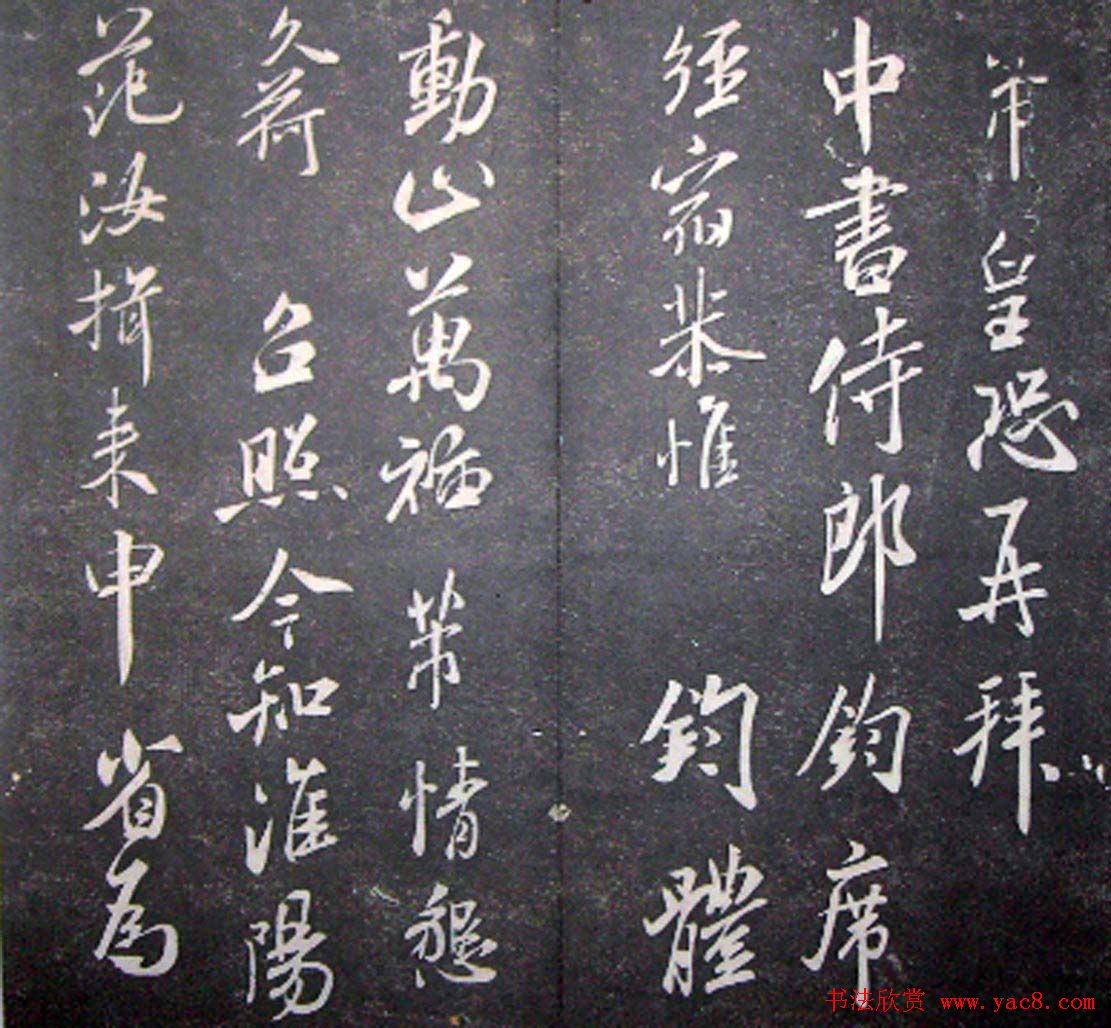 芾皇恐再拜
中書侍郎鈞席
經宿恭惟 鈞體
動止萬福 芾情懇
久荷 台照 今知淮陽
范汝揖来申省為
书法欣赏 www.yac8.com